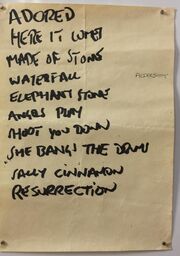 ADORED
HERE IT COMES
MADE OF STONE
WATERFALL
ELEPHANT STONE
ANGELS PLAY
SHOOT YOU DOWN
SHE BANGS THE DRUMS
SALLY CINNAMON
RESURRECTION